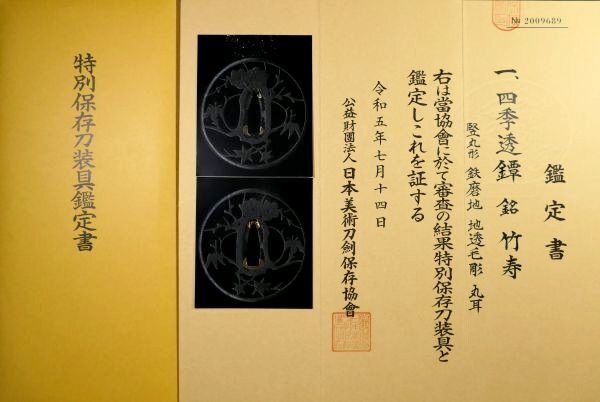 特別保存刀装具鑑定書
№ 2009689
鑑定書
一、四季透鐔 銘 竹寿
竪丸形 鉄磨地 地透毛彫 丸耳
右は當協會に於て審査の結果特別保存刀装具と
鑑定しこれを証する
令和五年七月十四日
公益財團法人 日本美術刀劍保存協會